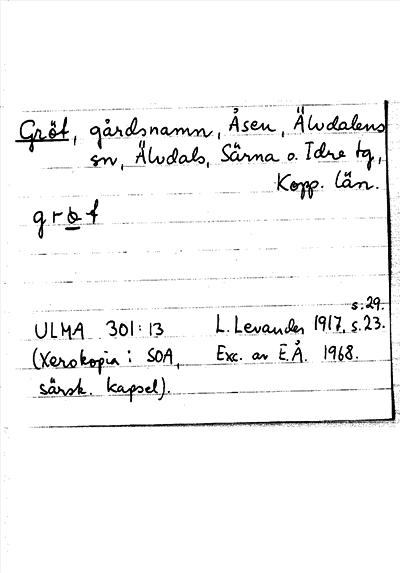 Gröt, gårdsnamn, Åsen, Älvdalens
sn, Älvdals, Särna o. Idre tg,
Kopp. län.
s. 29.
ULMA 301:13 L. Levander 1917, s. 23.
(Xerokopia i SOA, Exc. av E.Å. 1968.
särsk. kapsel).